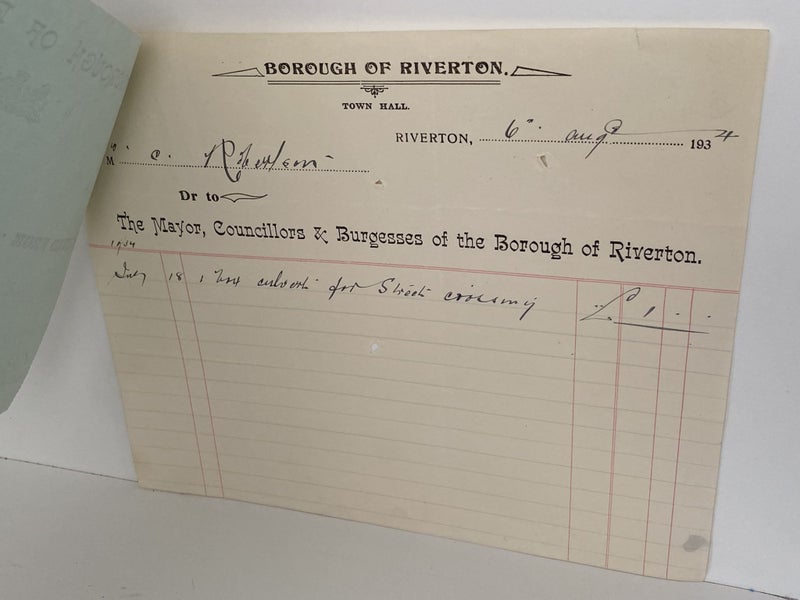 BOROUGH OF RIVERTON.
TOWN HALL.
RIVERTON, 6th augt 1934
Mr C. Robertson
Dr to
The Mayor, Councillors & Burgesses of the Borough of Riverton.
1934
July 18 1 box culvert for Street crossing £ 1 . .